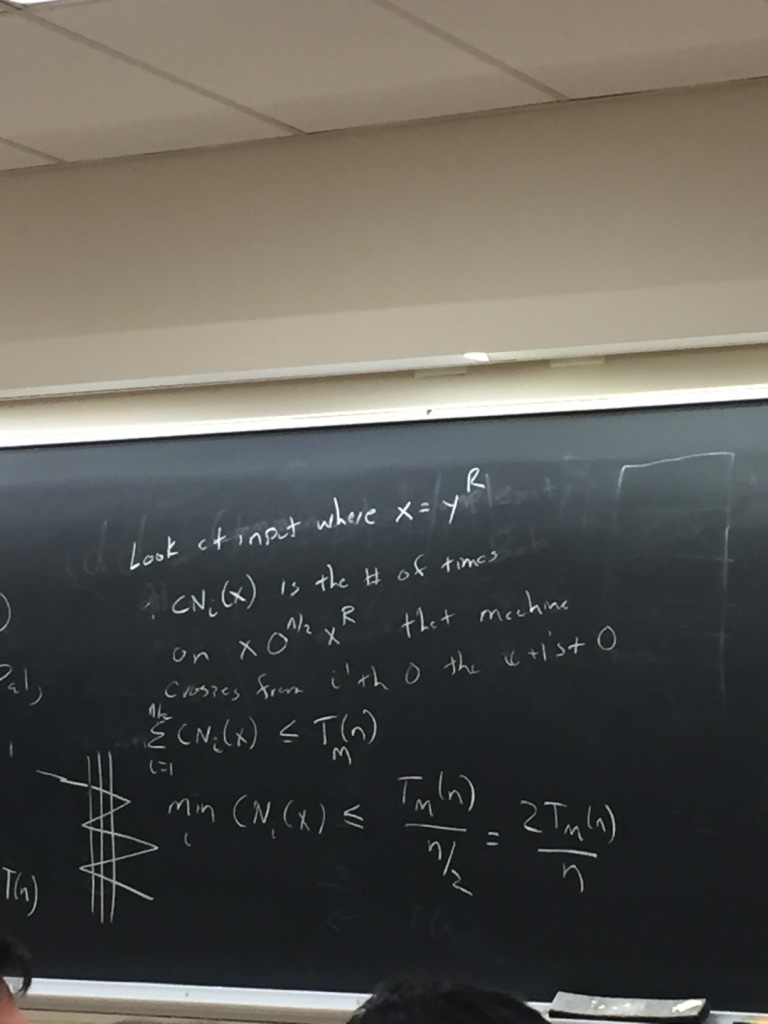 Look at input where x = y^R
CN_i(x) is the # of times
on x 0^{n/2} x^R that machine
crosses from i'th 0 the i+1'st 0
\sum_{i=1}^{n/2} CN_i(x) ≤ T_M(n)
min_i CN_i(x) ≤ T_M(n) / (n/2) = 2T_M(n) / n
)
Pal,
T(n)